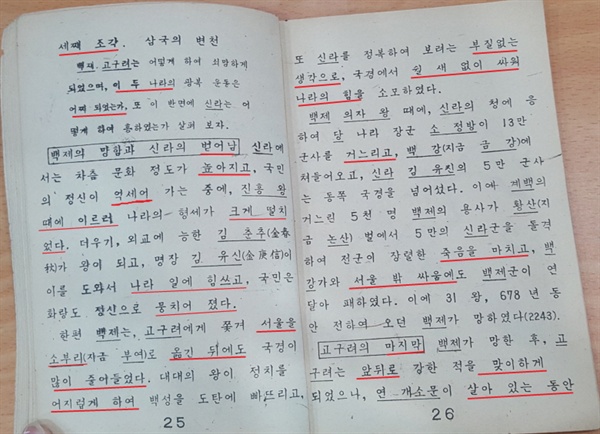 세째 조각. 삼국의 변천
백제. 고구려는 어떻게 하여 희망하게
되었으며, 이 두 나라의 광복 운동은
어찌 되었는가, 또 이 반면에 신라는 어
떻게 하여 흥하였는가 살펴 보자.
백제의 망함과 신라의 벋어남 신라에
서는 차츰 문화 정도가 높아지고, 국민
의 정신이 억세어 가는 중에, 진흥 왕
때에 이르러 나라의 형세가 크게 떨치
었다. 더우기, 외교에 능한 김 춘추(金春
秋)가 왕이 되고, 명장 김 유신(金庾信)이
이를 도와서 나라 일에 힘쓰고, 국민은
화랑도 정신으로 뭉치어 졌다.
한편 백제는, 고구려에게 쫓겨 서울을
소부리(지금 부여)로 옮긴 뒤에도 국경이
많이 줄어들었다. 대대의 왕이 정치를
어지럽게 하여 백성을 도탄에 빠뜨리고,
25
또 신라를 정복하여 보려는 부질없는
생각으로, 국경에서 쉴 새 없이 싸워
나라의 힘을 소모하였다.
백제 의자 왕 때에, 신라의 청에 응
하여 당 나라 장군 소 정방이 13만
군사를 거느리고, 백 강(지금 금 강)에
쳐들어오고, 신라 김 유신의 5만 군사
는 동쪽 국경을 넘어섰다. 이에 계백의
거느린 5천 명 백제의 용사가 황산(지
금 논산) 벌에서 5만의 신라군을 돌격
하여 전군의 장렬한 죽음을 마치고, 백
강가와 서울 밖 싸움에도 백제군이 연
달아 패하였다. 이에 31 왕, 678 년 동
안 전하여 오던 백제가 망하였다(2243).
고구려의 마지막 백제가 망한 후, 고
구려는 앞뒤로 강한 적을 맞이하게
되었으나, 연 개소문이 살아 있는 동안
26